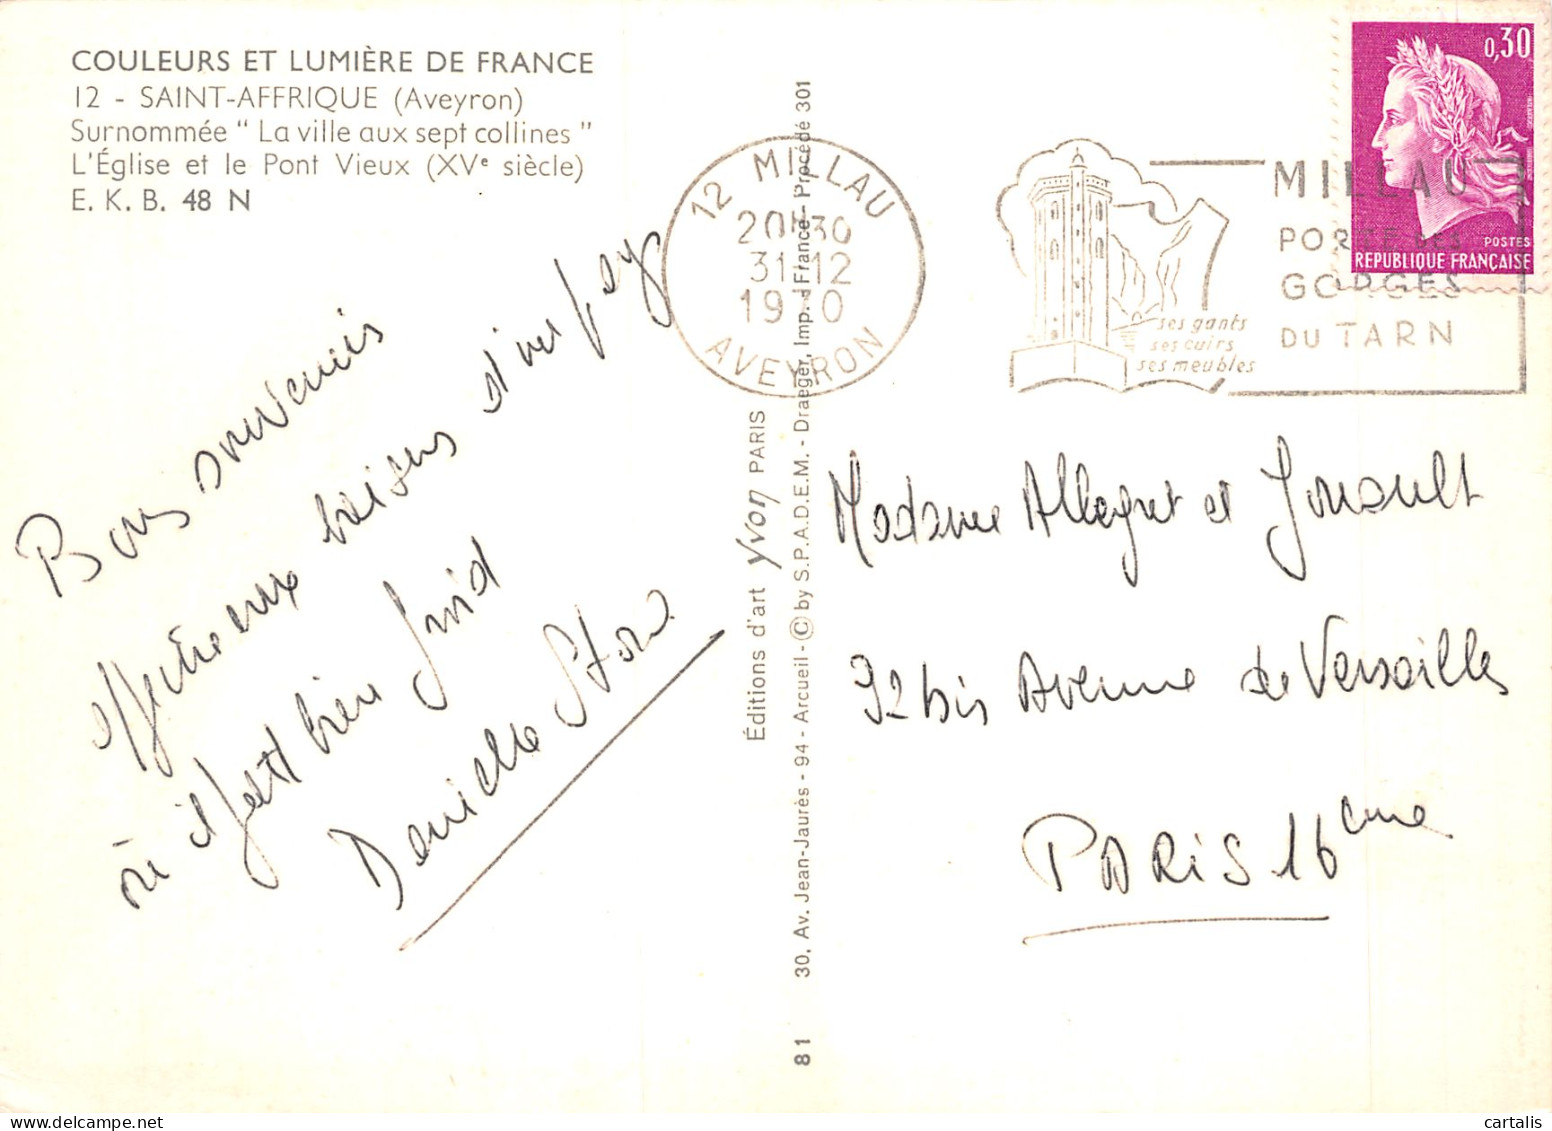 COULEURS ET LUMIÈRE DE FRANCE
12 - SAINT-AFFRIQUE (Aveyron)
Surnommée " La ville aux sept collines "
L'Église et le Pont Vieux (XVe siècle)
E. K. B. 48 N
Bons souvenirs
affectueux baisers d'un pays
où il fait bien froid
Danielle
Éditions d'art yvon PARIS
81 30, Av. Jean-Jaurès - 94 - Arcueil - © by S.P.A.D.E.M. - Draeger, Imp. - France - Procédé 301
12 MILLAU
20H30
31-12
1970
AVEYRON
ses gants
ses cuirs
ses meubles
MILLAU
PORTE DES
GORGES
DU TARN
0,30
POSTES
REPUBLIQUE FRANÇAISE
Madame Allegret et Jouault
92 bis Avenue de Versailles
PARIS 16eme
cartalis